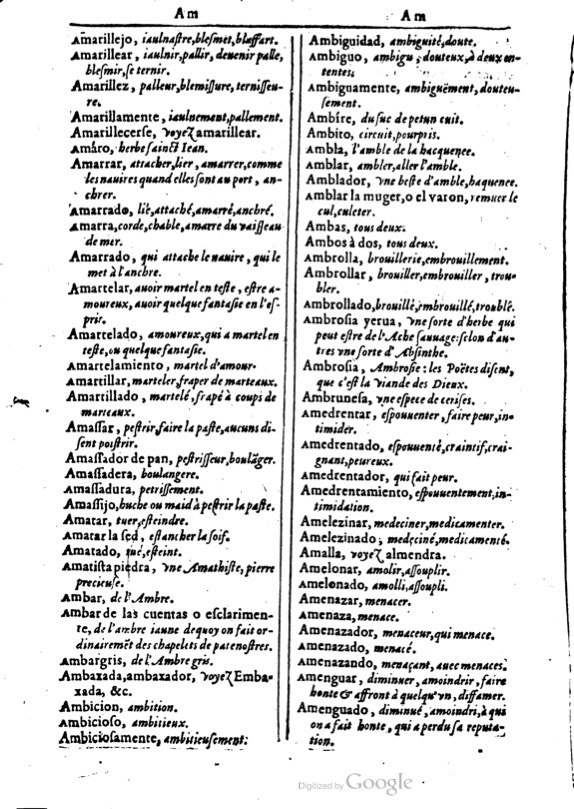 Am
Amarillejo, iaulnaſtre, bleſmet, blaffart.
Amarillear, iaulnir, pallir, deuenir palle,
bleſmir, ſe ternir.
Amarillez, palleur, blemiſſure, terniſſeu-
re.
Amarillamente, iaulnement, pallement.
Amarillecerſe, voyez amarillear.
Amáro, herbe ſainct Iean.
Amarrar, attacher, lier, amarrer, comme
les nauires quand elles ſont au port, an-
chrer.
Amarrado, lié, attaché, amarré, anchré.
Amarra, corde, chable, amarre du vaiſſeau
de mer.
Amarrado, qui attache le nauire, qui le
met à l'anchre.
Amartelar, auoir martel en teſte, eſtre a-
moureux, auoir quelque fantaſie en l'eſ-
prit.
Amartelado, amoureux, qui a martel en
teſte, ou quelque fantaſie.
Amartelamiento, martel d'amour.
Amartillar, marteler, fraper de marteaux.
Amartillado, martelé, frapé à coups de
marteaux.
Amaſſar, peſtrir, faire la paſte, aucuns di-
ſent poiſtrir.
Amaſſador de pan, peſtriſſeur, boulãger.
Amaſſadera, boulangere.
Amaſſadura, petriſſement.
Amaſſijo, huche ou maid à peſtrir la paſte.
Amatar, tuer, eſteindre.
Amatar la ſed, eſtancher la ſoif.
Amatado, tué, eſteint.
Amatiſta piedra, vne Amathiſte, pierre
precieuſe.
Ambar, de l'Ambre.
Ambar de las cuentas o eſclarimen-
te, de l'ambre iaune dequoy on fait or-
dinairemẽt des chapelets de patenoſtres.
Ambargris, de l'Ambre gris.
Ambaxada, ambaxador, voyez Emba-
xada, &c.
Ambicion, ambition.
Ambicioſo, ambitieux.
Ambicioſamente, ambitieuſement.
Am
Ambiguidad, ambiguité, doute.
Ambiguo, ambigu, douteux, à deux en-
tentes.
Ambiguamente, ambiguëment, douteu-
ſement.
Ambire, du ſuc de petun cuit.
Ambito, circuit, pourpris.
Ambla, l'amble de la hacquenee.
Amblar, ambler, aller l'amble.
Amblador, vne beſte d'amble, haquenee.
Amblar la muger, o el varon, remuer le
cul, culeter.
Ambas, tous deux.
Ambos à dos, tous deux.
Ambrolla, brouillerie, embrouillement.
Ambrollar, brouiller, embrouiller, trou-
bler.
Ambrollado, brouillé, embrouillé, troublé.
Ambroſia yerua, vne ſorte d'herbe qui
peut eſtre de l'Ache ſauuage: ſelon d'au-
tres vne ſorte d'Abſinthe.
Ambroſia, Ambroſie: les Poëtes diſent,
que c'eſt la viande des Dieux.
Ambruneſa, vne eſpece de ceriſes.
Amedrentar, eſpouuenter, faire peur, in-
timider.
Amedrentado, eſpouuenté, craintif, crai-
gnant, peureux.
Amedrentador, qui fait peur.
Amedrentamiento, eſpouuentement, in-
timidation.
Amelezinar, medeciner, medicamenter.
Amelezinado, medeciné, medicamenté.
Amalla, voyez almendra.
Amelonar, amolir, aſſouplir.
Amelonado, amolli, aſſoupli.
Amenazar, menacer.
Amenaza, menace.
Amenazador, menaceur, qui menace.
Amenazado, menacé.
Amenazando, menaçant, auec menaces.
Amenguar, diminuer, amoindrir, faire
honte & affront à quelqu'vn, diffamer.
Amenguado, diminué, amoindri, à qui
on a fait honte, qui a perdu ſa reputa-
tion.
Digitized by Google